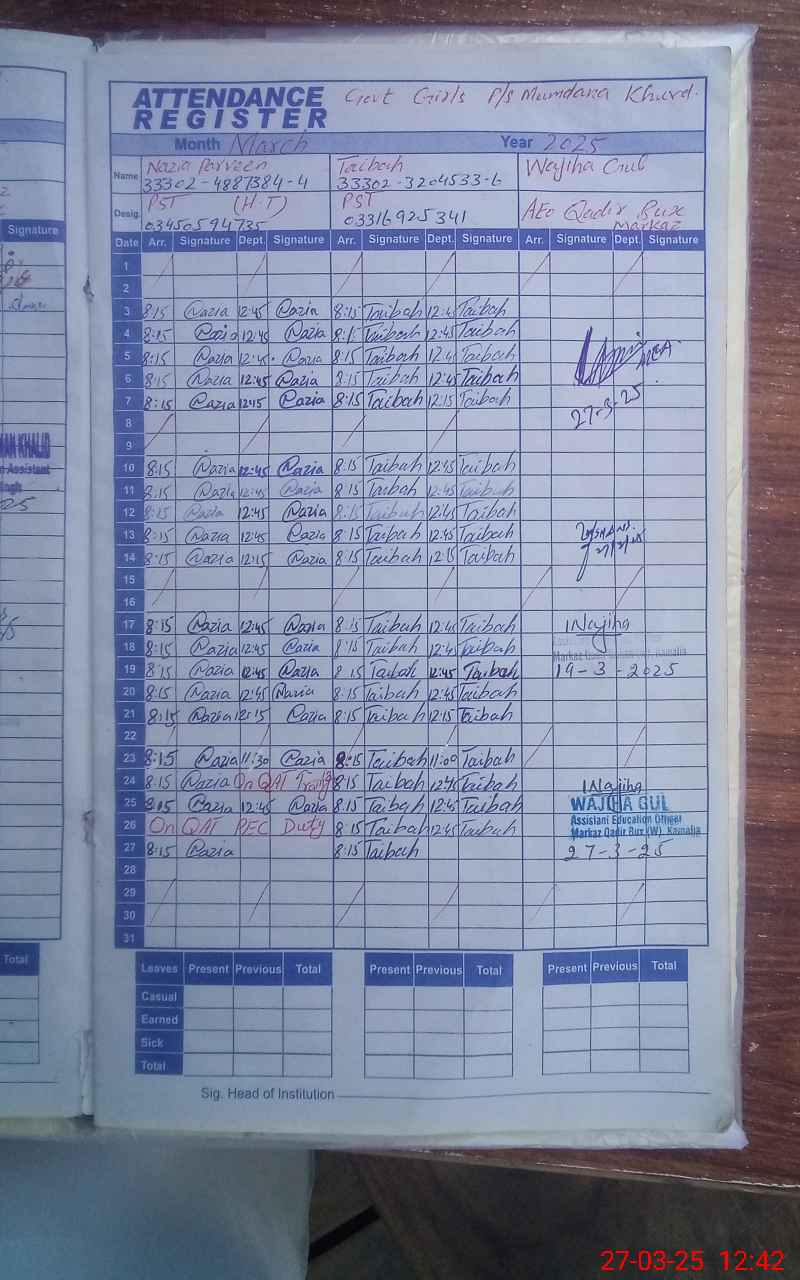 ATTENDANCE REGISTER Govt Girls P/s Mumdana Khurd.
Month March Year 2025
Name Nazia Parveen Taibah Wajiha Gul
33302-4887384-4 33302-3204533-6
Desig. PST (H.T) PST AEO Qadir Bux
03450594735 03316925341 Markaz
Date Arr. Signature Dept. Signature Arr. Signature Dept. Signature Arr. Signature Dept. Signature
1
2
3 8:15 Nazia 12:45 Nazia 8:15 Taibah 12:45 Taibah
4 8:15 Nazia 12:45 Nazia 8:15 Taibah 12:45 Taibah
5 8:15 Nazia 12:45 Nazia 8:15 Taibah 12:45 Taibah MEA
6 8:15 Nazia 12:45 Nazia 8:15 Taibah 12:45 Taibah
7 8:15 Nazia 12:15 Nazia 8:15 Taibah 12:15 Taibah 27-3-25
8
9
10 8:15 Nazia 12:45 Nazia 8:15 Taibah 12:45 Taibah
11 8:15 Nazia 12:45 Nazia 8:15 Taibah 12:45 Taibah
12 8:15 Nazia 12:45 Nazia 8:15 Taibah 12:45 Taibah
13 8:15 Nazia 12:45 Nazia 8:15 Taibah 12:45 Taibah
14 8:15 Nazia 12:15 Nazia 8:15 Taibah 12:15 Taibah
15
16
17 8:15 Nazia 12:45 Nazia 8:15 Taibah 12:45 Taibah Wajiha
18 8:15 Nazia 12:45 Nazia 8:15 Taibah 12:45 Taibah
19 8:15 Nazia 12:45 Nazia 8:15 Taibah 12:45 Taibah 19-3-2025
20 8:15 Nazia 12:45 Nazia 8:15 Taibah 12:45 Taibah
21 8:15 Nazia 12:15 Nazia 8:15 Taibah 12:15 Taibah
22
23 8:15 Nazia 11:30 Nazia 8:15 Taibah 11:00 Taibah
24 8:15 Nazia On QAT 8:15 Taibah 12:45 Taibah Wajiha
25 8:15 Nazia 12:45 Nazia 8:15 Taibah 12:45 Taibah WAJIHA GUL
Assistant Education Officer
26 On QAT PEC Duty 8:15 Taibah 12:45 Taibah Markaz Qadir Bux (W), Kamalia
27 8:15 Nazia 8:15 Taibah 27-3-25
28
29
30
31
Leaves Present Previous Total Present Previous Total Present Previous Total
Casual
Earned
Sick
Total
Sig. Head of Institution
Signature
MAN KHALID
Assistant
Total
27-03-25 12:42